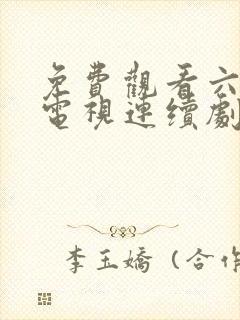 免費觀看六
電視連續劇
李玉嬌（合作